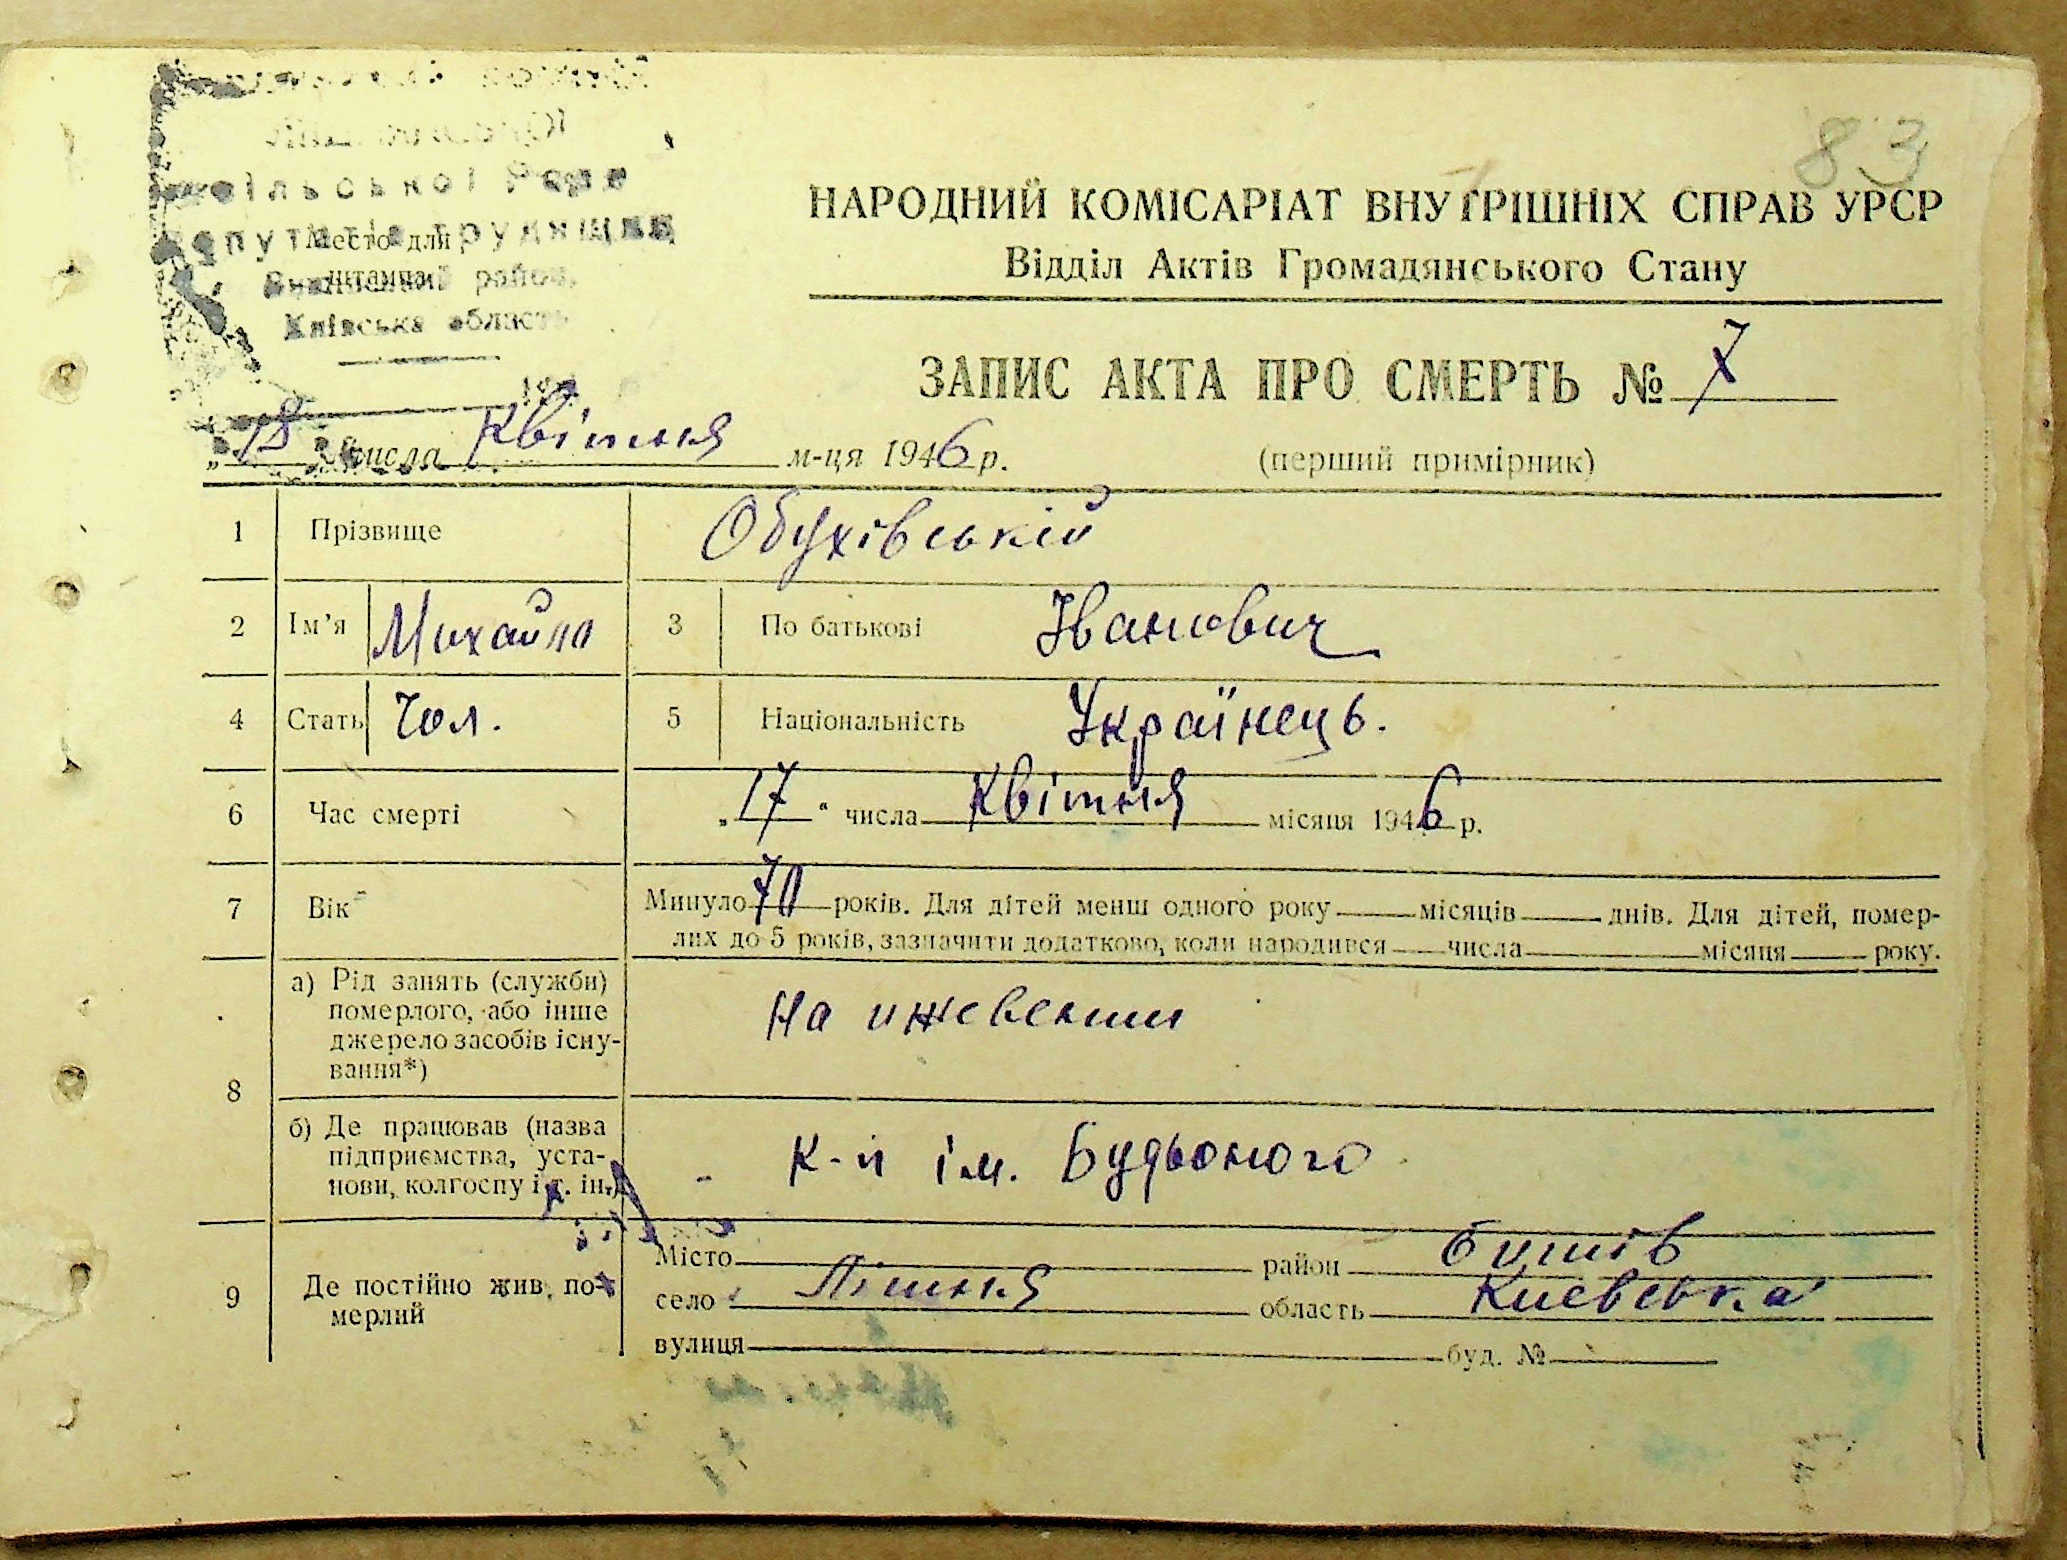 83
сільської Ради
депутатів трудящих
Место для
штампа
район,
Київська область
НАРОДНИЙ КОМІСАРІАТ ВНУТРІШНІХ СПРАВ УРСР
Відділ Актів Громадянського Стану
ЗАПИС АКТА ПРО СМЕРТЬ № 7
„18 числа Квітня м-ця 1946 р.
(перший примірник)
1 Прізвище Обухівській
2 Ім’я Михайло 3 По батькові Іванович
4 Стать Чол. 5 Національність Українець.
6 Час смерті „17“ числа Квітня місяця 1946 р.
7 Вік Минуло 70 років. Для дітей менш одного року місяців днів. Для дітей, помер-
лих до 5 років, зазначити додатково, коли народився числа місяця року.
8 а) Рід занять (служби)
померлого, або інше
джерело засобів існу-
вання*)
На ижевении
б) Де працював (назва
підприємства, уста-
нови, колгоспу і т. ін.)
К-п ім. Будьоного
9 Де постійно жив по-
мерлий
Місто район Бишів
село Лішня область Києвська
вулиця буд. №